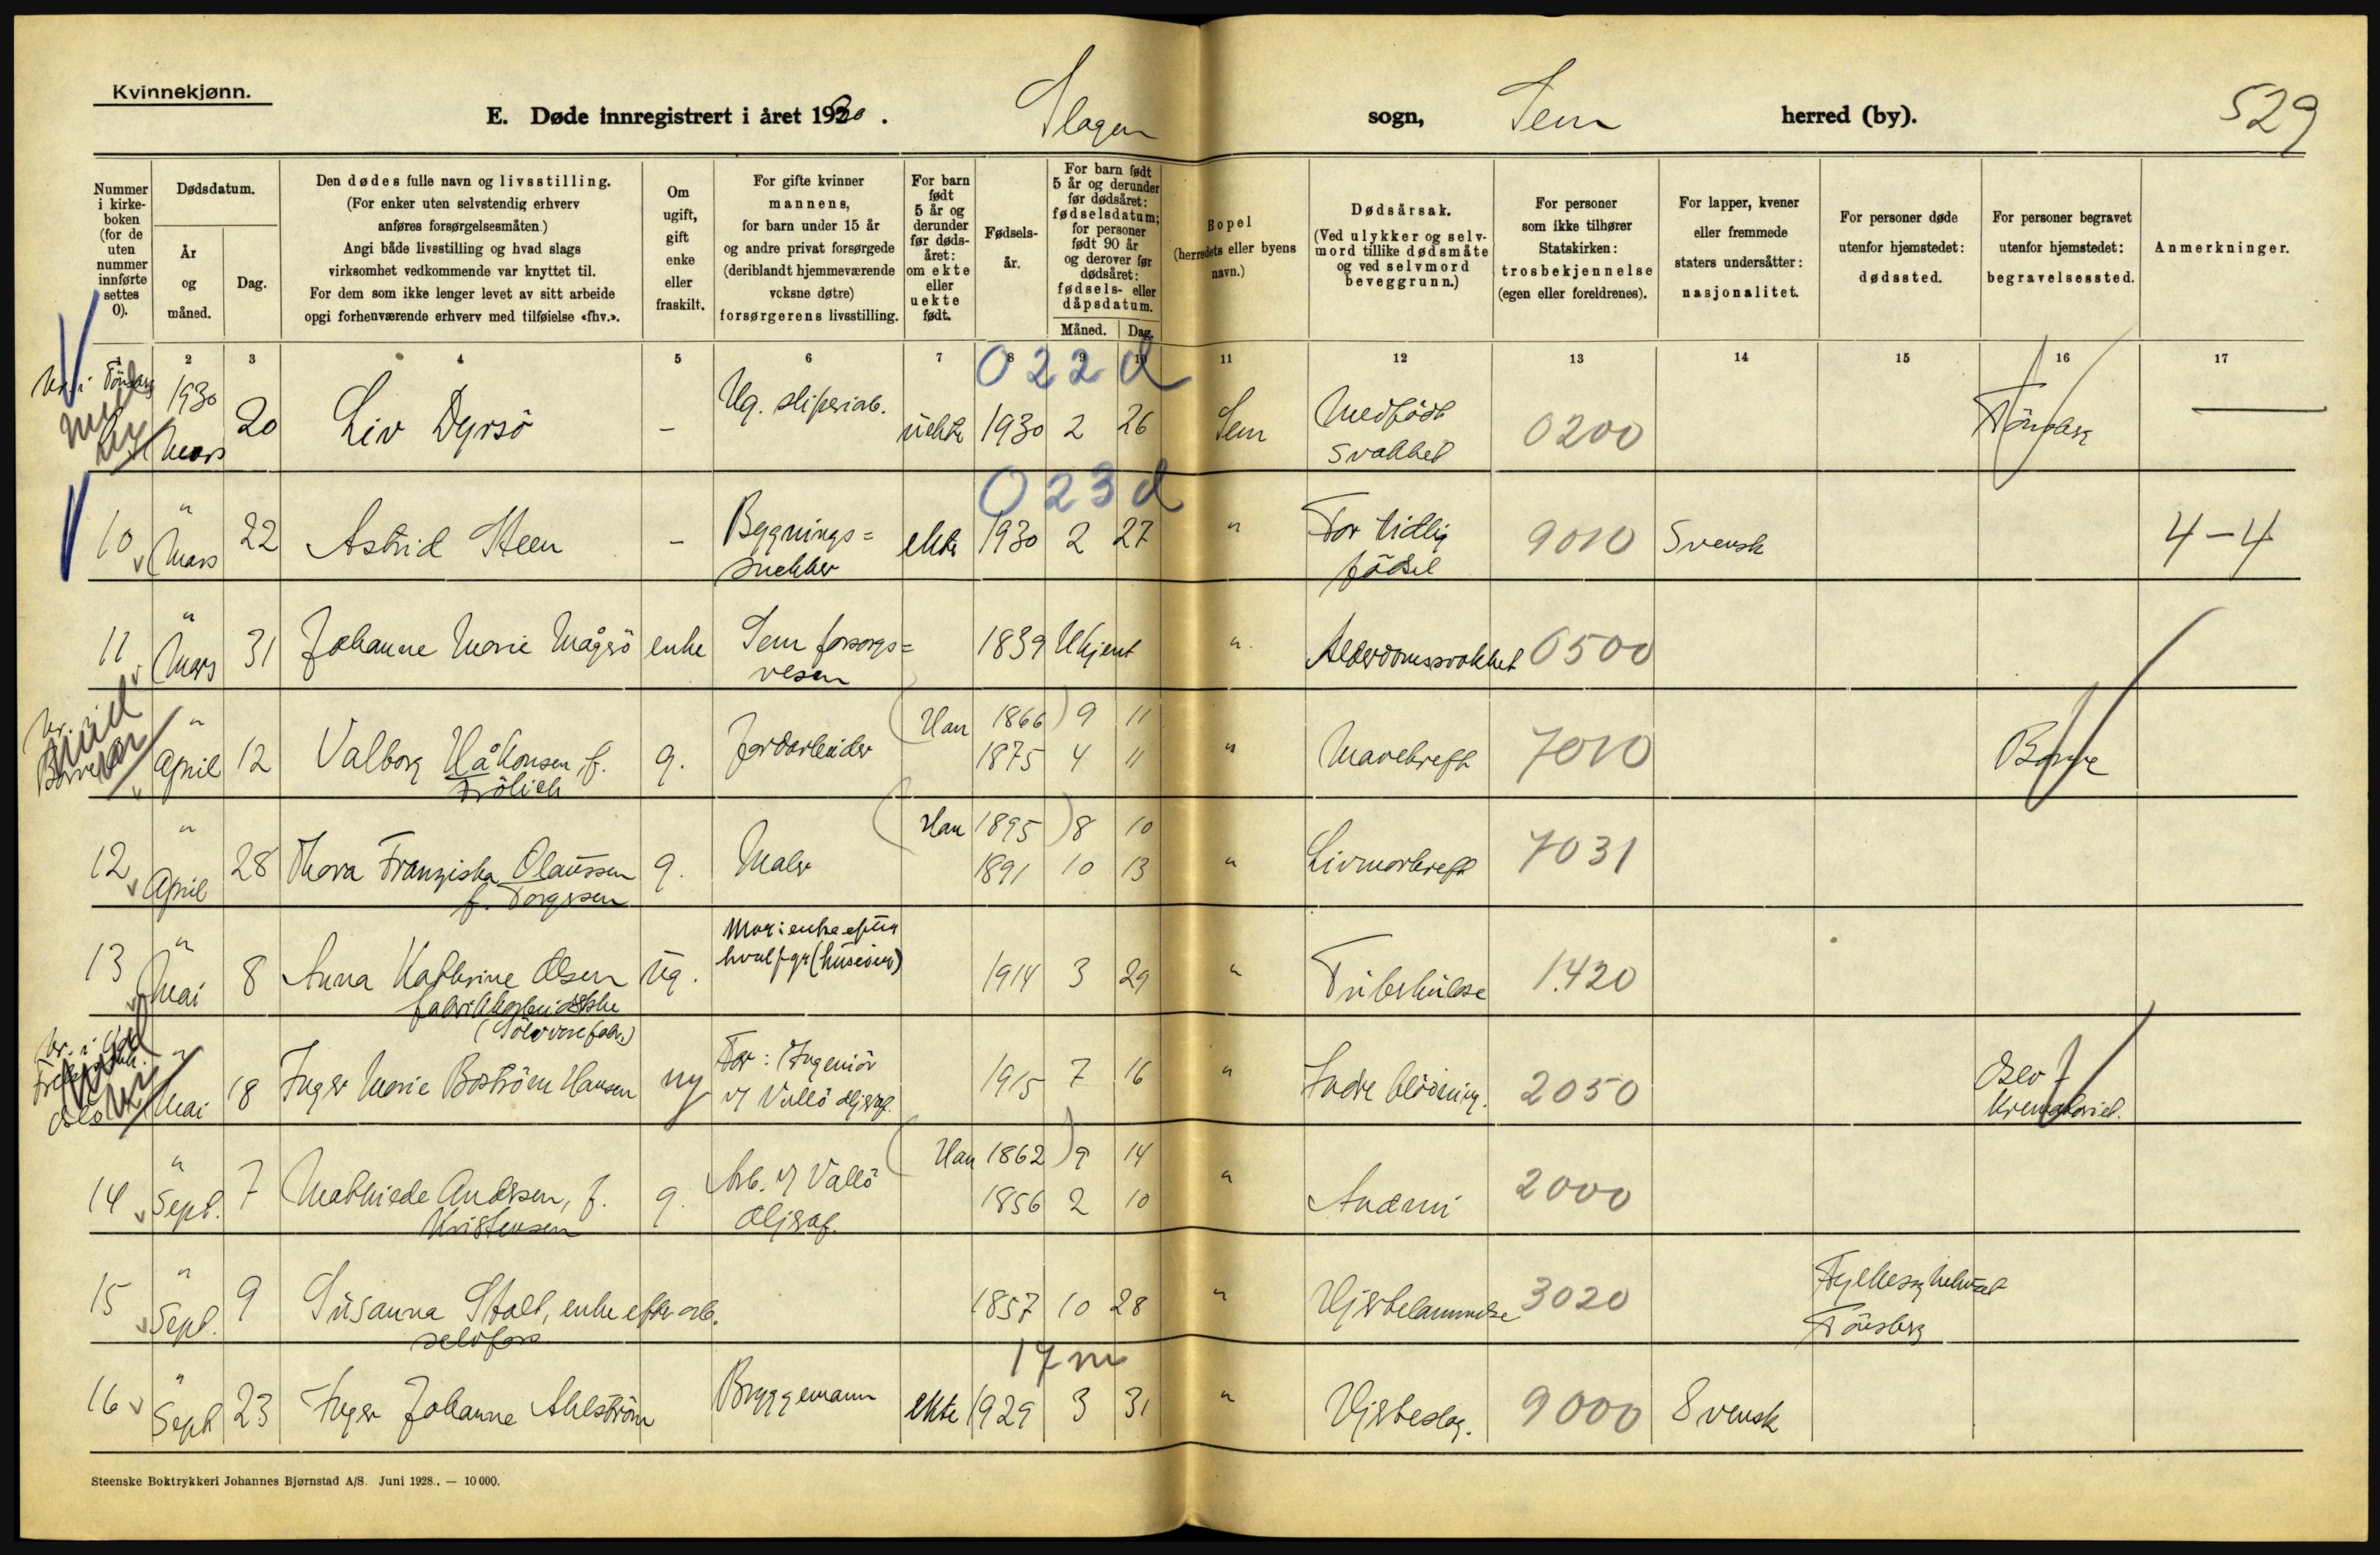 Kvinnekjønn.
E. Døde innregistrert i året 1930.
Slagen sogn, Sem herred (by).
529
Nummer i kirkeboken (for de uten nummer innførte settes 0).
Dødsdatum.
År og måned.
Dag.
Den dødes fulle navn og livsstilling.
(For enker uten selvstendig erhverv
anføres forsørgelsesmåten.)
Angi både livsstilling og hvad slags
virksomhet vedkommende var knyttet til.
For dem som ikke lenger levet av sitt arbeide
opgi forhenværende erhverv med tilføielse «fhv.».
Om ugift, gift enke eller fraskilt.
For gifte kvinner
mannens,
for barn under 15 år
og andre privat forsørgede
(deriblandt hjemmeværende
voksne døtre)
forsørgerens livsstilling.
For barn født 5 år og derunder før dødsåret: om ekte eller uekte født.
Fødselsår.
For barn født
5 år og derunder
før dødsåret:
fødselsdatum;
for personer
født 90 år
og derover før
dødsåret:
fødsels- eller
dåpsdatum.
Måned. Dag.
Bopel
(herredets eller byens
navn.)
Dødsårsak.
(Ved ulykker og selv-
mord tillike dødsmåte
og ved selvmord
beveggrunn.)
For personer
som ikke tilhører
Statskirken:
trosbekjennelse
(egen eller foreldrenes).
For lapper, kvener
eller fremmede
staters undersåtter:
nasjonalitet.
For personer døde
utenfor hjemstedet:
dødssted.
For personer begravet
utenfor hjemstedet:
begravelsessted.
Anmerkninger.
1 2 3 4 5 6 7 8 9 10 11 12 13 14 15 16 17
022d
1930 Mars 20 Liv Dyrsö - Ug. sliperiarb. uekte 1930 2 26 Sem Medfödt svakhet 0200 Tönsberg —
023d
10 " Mars 22 Astrid Steen - Bygnings= snekker ekte 1930 2 27 " For tidlig födsel 9010 Svensk 4-4
11 " Mars 31 Johanne Marie Mågerö enke Sem forsorgs= vesen 1839 Ukjent " Alderdomssvakhet 0500
(Han 1866) 9 11
" April 12 Valborg Håkonsen, f. Frölich g. Jordarbeider 1875 4 11 " Mavekreft 7010 Borre
(Han 1895) 8 10
12 " April 28 Thora Franziska Olaussen f. Torgersen g. Maler 1891 10 13 " Livmorkreft 7031
13 " Mai 8 Anna Kathrine Olsen fabrikkarbeiderske (Sölvvarefabr.) ug. Mor: enke efter hvalfgr (huseier) 1914 3 29 " Tuberkulose 1420
" Mai 18 Inger Marie Boström Hansen ug Far: Ingeniör v/ Vallö oljeraf. 1915 7 16 " Indre blödning. 2050 Oslo Krematoriet.
(Han 1862) 9 14
14 " Sept. 7 Mathilde Andersen, f. Kristensen g. Arb. v/ Vallö Oljeraf. 1856 2 10 " Anæmi 2000
15 " Sept. 9 Susanna Stalt, enke efter arb. selvfors. 1857 10 28 " Hjertelammelse 3020 Fylkessykehuset Tönsberg
17 m
16 " Sept 23 Inger Johanne Ahlström Bryggemann ekte 1929 3 31 " Hjerteslag. 9000 Svensk
Steenske Boktrykkeri Johannes Bjørnstad A/S. Juni 1928. — 10 000.